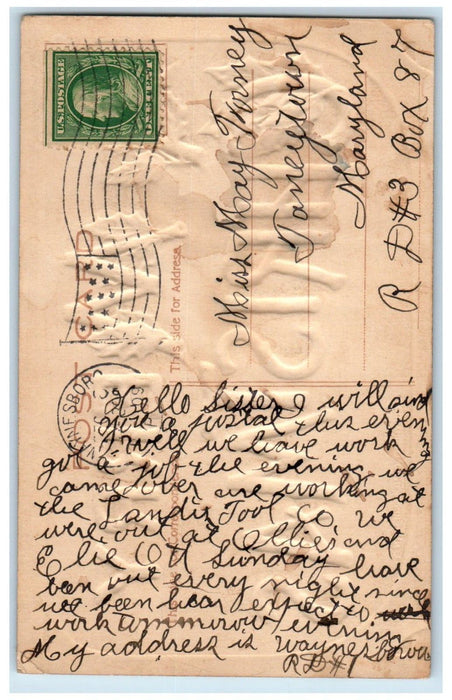 U.S. POSTAGE
ONE CENT
POST CARD
This side for Address
WAYNESBORO
Miss May
Taneytown
Maryland
R D#3 Box 87
Hello Sister I will
you a postal this evening
well we have work
got a job the evening we
came over are working at
the Landis Tool Co. We
were out at Ollies and
Elie Ott Sunday have
been out every night since
we been hear expect to
work tommorow evening
My address is waynesboro
R D#1